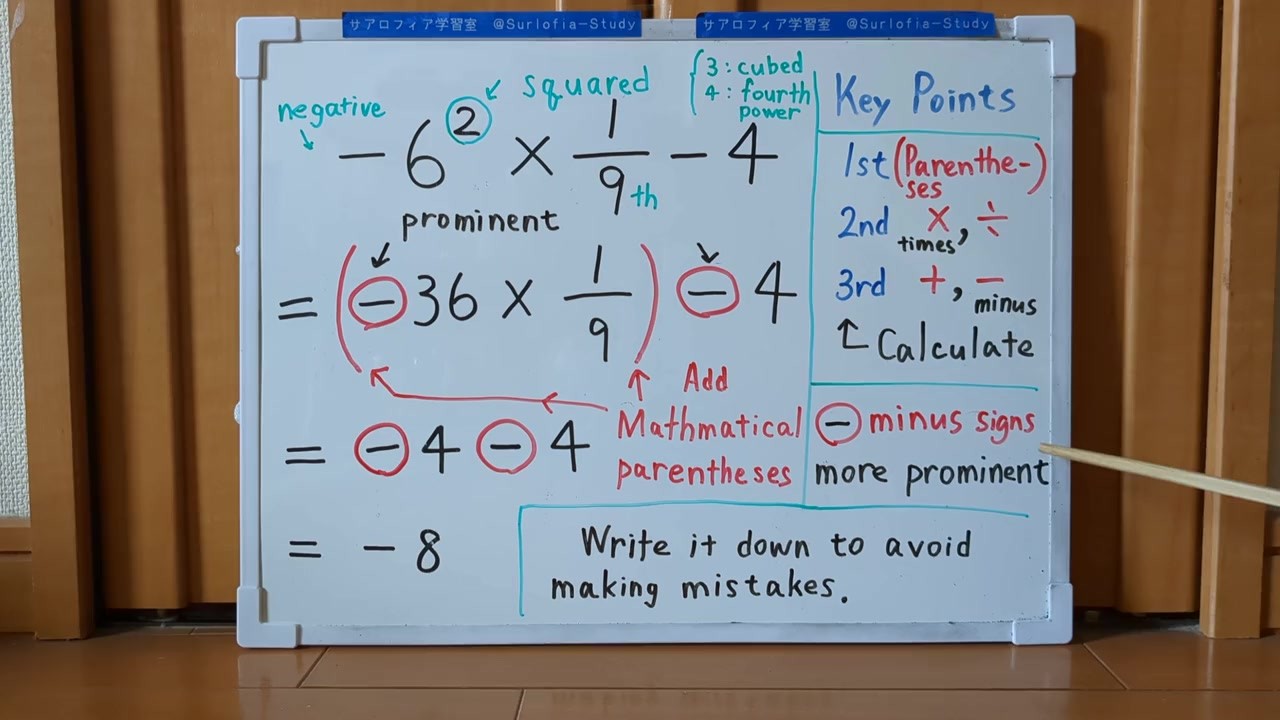 サアロフィア学習室 @Surlofia-Study
サアロフィア学習室 @Surlofia-Study
negative
squared
3 : cubed
4 : fourth
power
− 6² × 1/9 − 4
th
prominent
= ( − 36 × 1/9 ) − 4
Add
Mathmatical
parentheses
= − 4 − 4
= − 8
Key Points
1st (Parenthe-)
ses
2nd × , ÷
times
3rd + , −
minus
Calculate
− minus signs
more prominent
Write it down to avoid
making mistakes.